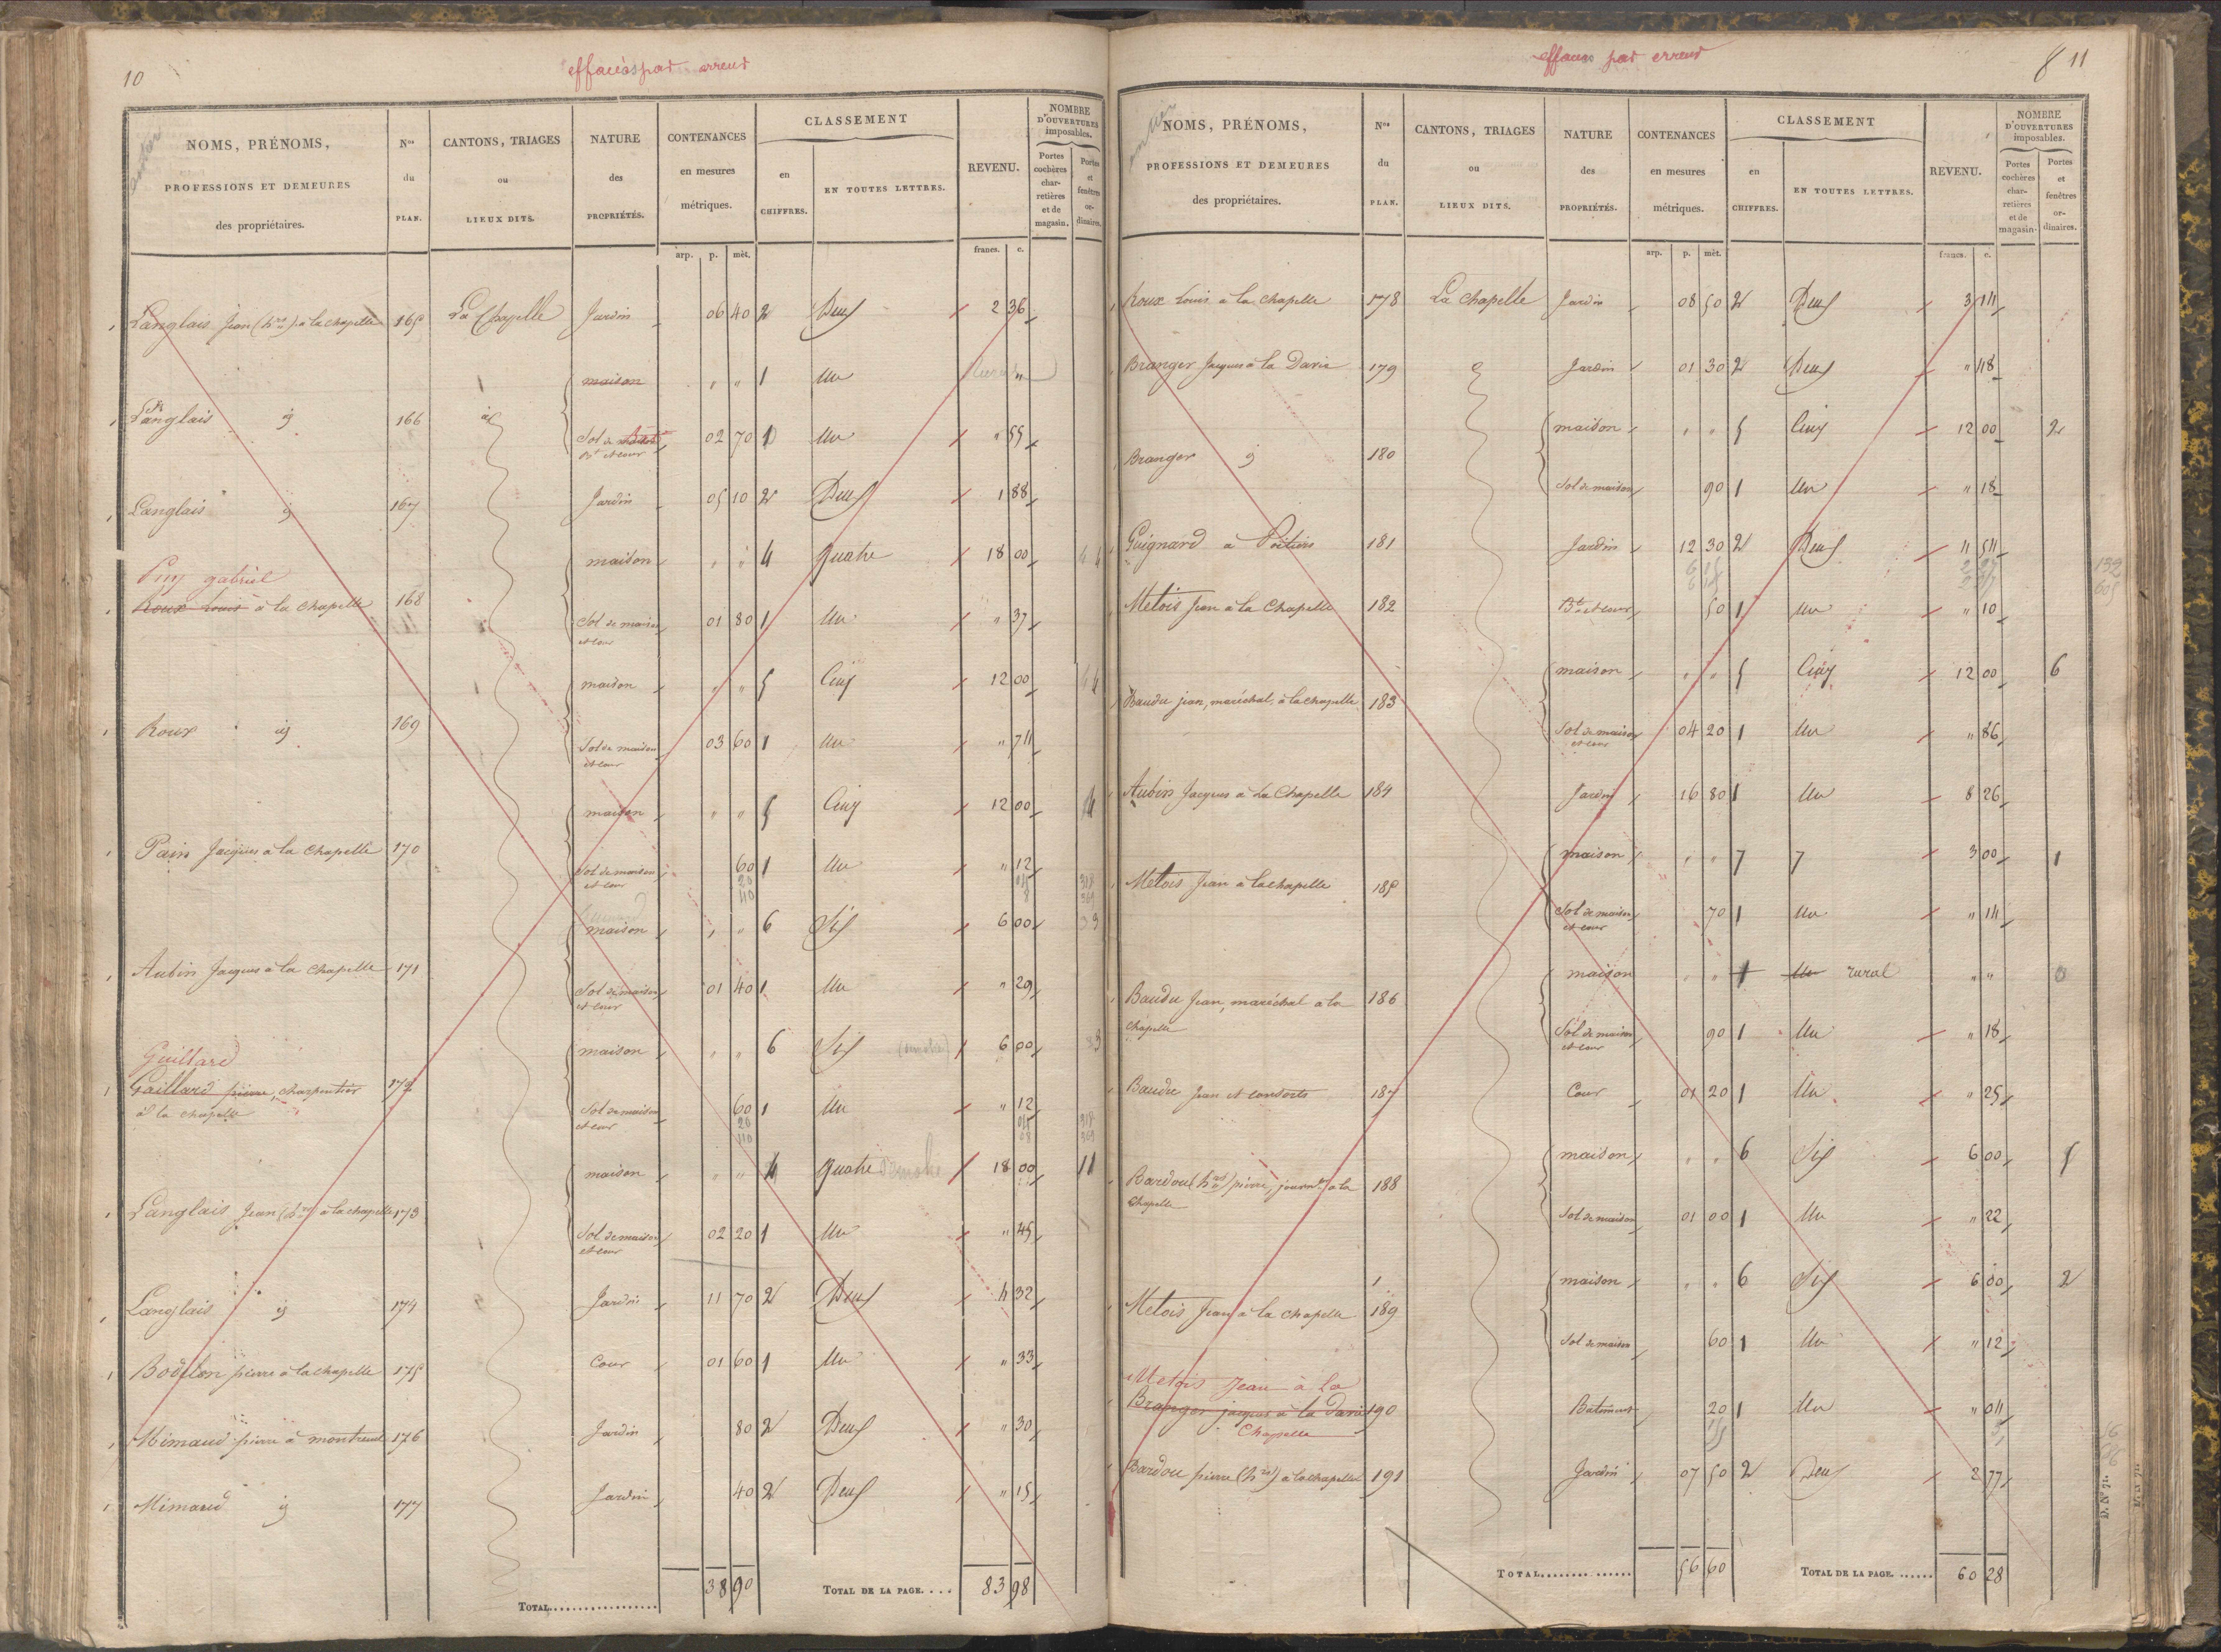 10
effacés par erreur
NOMS, PRÉNOMS, PROFESSIONS ET DEMEURES des propriétaires.
Nos du PLAN.
CANTONS, TRIAGES ou LIEUX DITS.
NATURE des PROPRIÉTÉS.
CONTENANCES en mesures métriques.
CLASSEMENT
en CHIFFRES.
EN TOUTES LETTRES.
REVENU.
NOMBRE D'OUVERTURES imposables.
Portes cochères charretières et de magasin.
Portes et fenêtres ordinaires.
arp. p. mèt. francs. c.
Langlais Jean (hrs) à la chapelle 165 La Chapelle Jardin 06 40 2 Deux 2 36
maison " " 1 Un "
Langlais id 166 id Sol de Bt et cour 02 70 1 Un " 55
Langlais id 167 Jardin 05 10 2 Deux 1 88
maison " " 4 quatre 18 00
Puy gabriel
Roux Louis à la chapelle 168 Sol de maison et cour 01 80 1 Un " 37
maison " " 5 Cinq 12 00
Roux id 169 Sol de maison et cour 03 60 1 Un " 74
maison " " 5 Cinq 12 00 4
Pain Jacques à la chapelle 170 Sol de maison et cour 60 1 Un " 12
20 04 318
40 8 369
maison " " 6 Six 6 00 3
Aubin Jacques à la chapelle 171 Sol de maison et cour 01 40 1 Un " 29
maison " " 6 Six 6 00 3
Guillard
Gaillard pierre, charpentier à la chapelle 172 Sol de maison et cour 60 1 Un " 12
20 04 318
40 08 369
maison " " 4 quatre 18 00 11
Langlais Jean (hrs) à la chapelle 173 Sol de maison et cour 02 20 1 Un " 45
Langlais id 174 Jardin 11 70 2 Deux 4 32
Bodilon pierre à la chapelle 175 Cour 01 60 1 Un " 33
Mimaud pierre à montreuil 176 Jardin 80 2 Deux " 30
Mimaud id 177 Jardin 40 2 Deux " 15
TOTAL 38 90 TOTAL DE LA PAGE.... 83 98
effacés par erreur
11
NOMS, PRÉNOMS, PROFESSIONS ET DEMEURES des propriétaires.
Nos du PLAN.
CANTONS, TRIAGES ou LIEUX DITS.
NATURE des PROPRIÉTÉS.
CONTENANCES en mesures métriques.
CLASSEMENT
en CHIFFRES.
EN TOUTES LETTRES.
REVENU.
NOMBRE D'OUVERTURES imposables.
Portes cochères charretières et de magasin.
Portes et fenêtres ordinaires.
arp. p. mèt. francs. c.
Roux Louis à la chapelle 178 La chapelle Jardin 08 50 2 Deux 3 14
Branger Jacques à la Davie 179 Jardin 01 30 2 Deux " 48
maison " " 5 Cinq 12 00 2
Branger id 180 Sol de maison 90 1 Un " 18
Guignard à Poitiers 181 Jardin 12 30 2 Deux 4 54
Metois Jean à la Chapelle 182 Bt et cour 50 1 Un " 10
maison " " 5 Cinq 12 00 6
Baudu jean, maréchal, à la chapelle 183 Sol de maison et cour 04 20 1 Un " 86
Aubin Jacques à La Chapelle 184 Jardin 16 80 1 Un 8 26
maison " " 7 7 3 00 1
Metois Jean à la chapelle 185 Sol de maison et cour 70 1 Un " 14
maison " " 1 Un rural " " 0
Baudu Jean, maréchal à la chapelle 186 Sol de maison et cour 90 1 Un " 18
Baudu Jean et consorts 187 Cour 01 20 1 Un " 25
maison " " 6 Six 6 00 5
Bardou (hrs) pierre, journr à la chapelle 188 Sol de maison 01 00 1 Un " 22
maison " " 6 Six 6 00 2
Metois Jean à la chapelle 189 Sol de maison 60 1 Un " 12
Metois Jean à la
Branger jacques à la Davie 190 Batiment 20 1 Un " 04
Chapelle
Bardou pierre (hrs) à la chapelle 191 Jardin 07 50 2 Deux 2 77
TOTAL 56 60 TOTAL DE LA PAGE. 60 28
D. N° 71.